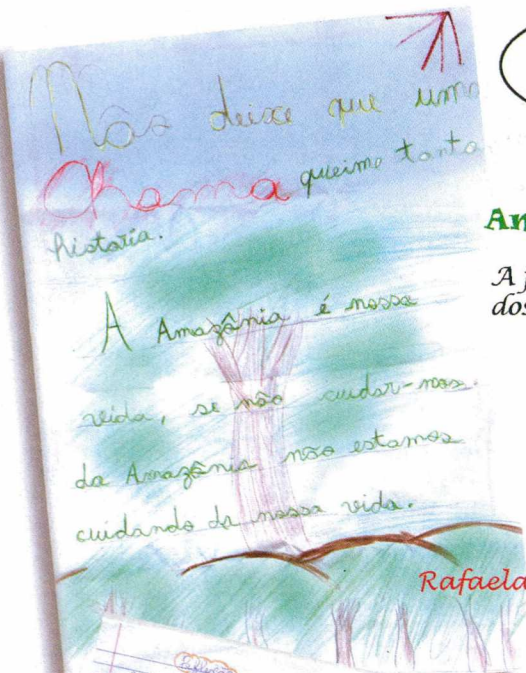 Não deixe que uma
Chama queime tanta
história.
A Amazônia é nossa
vida, se não cuidar-mos
da Amazônia não estamos
cuidando da nossa vida.
Rafaela